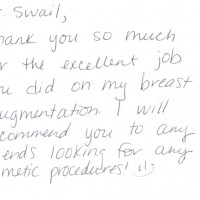 . Swail,
hank you so much
r the excellent job
u did on my breast
ugmentation. I will
commend you to any
ends looking for any
metic procedures!